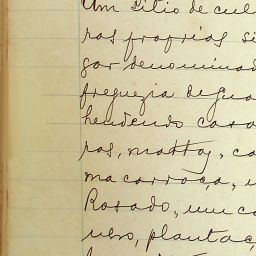 Um sitio de cul
ras proprias si
gar denominad
freguezia de Gua
hendendo casa
ras, mattas, ca
ma carroça, u
Rosado, um ca
uro, plantaç